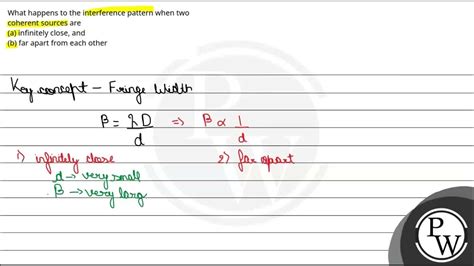 What happens to the interference pattern when two
coherent sources are
(a) infinitely close, and
(b) far apart from each other
Key concept – Fringe Width
β = λD/d ⇒ β ∝ 1/d
1) infinitely close
d → very small
β → very larg
2) far apart
P
W
PW